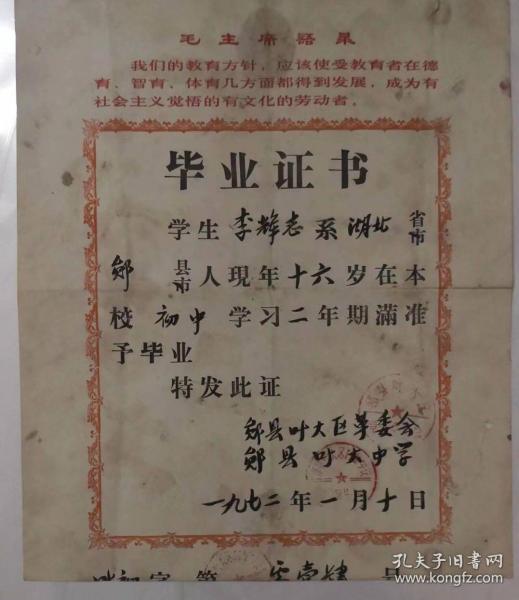 毛主席语录
我们的教育方针，应该使受教育者在德
育、智育、体育几方面都得到发展，成为有
社会主义觉悟的有文化的劳动者。
毕业证书
学生李辉志系湖北省市
郧县市人現年十六岁在本
校初中学习二年期滿准
予毕业
特发此证
郧县叶大区革委会
郧县叶大中学
一九七二年一月十日
字第零壹肆号
孔夫子旧书网
www.kongfz.com